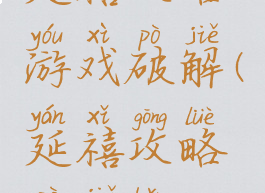 yóu xì pò jiě
游戏破解(
yán xǐ gōng lüè
延禧攻略